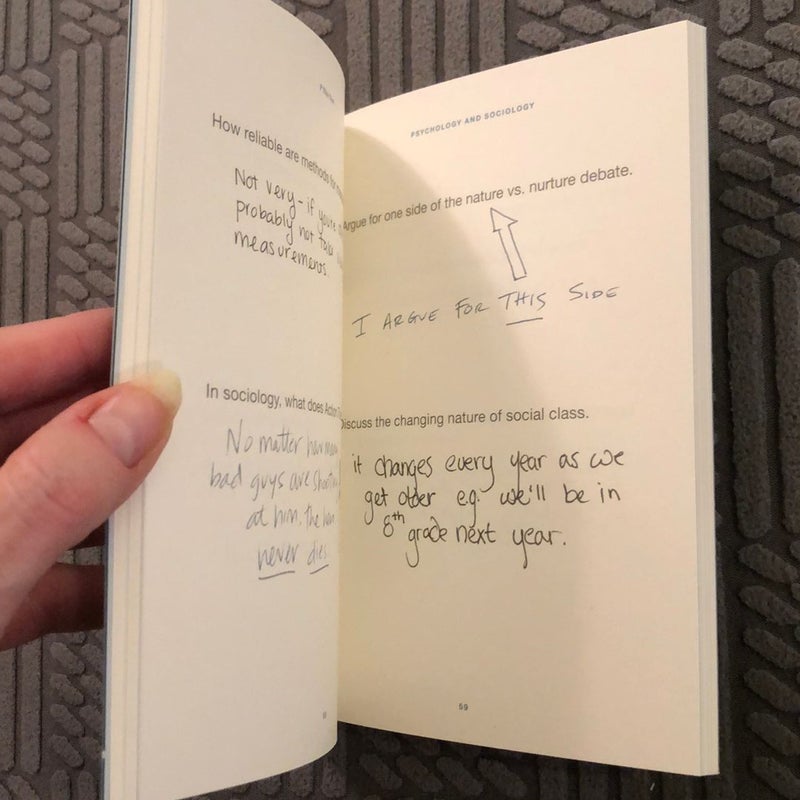 How reliable are methods for
Not very - if you're
probably not take
measurements.
In sociology, what does Action
No matter how
bad guys are shooting
at him, the
never dies
PSYCHOLOGY AND SOCIOLOGY
Argue for one side of the nature vs. nurture debate.
I ARGUE FOR THIS SIDE
Discuss the changing nature of social class.
it changes every year as we
get older e.g. we'll be in
8th grade next year.
59